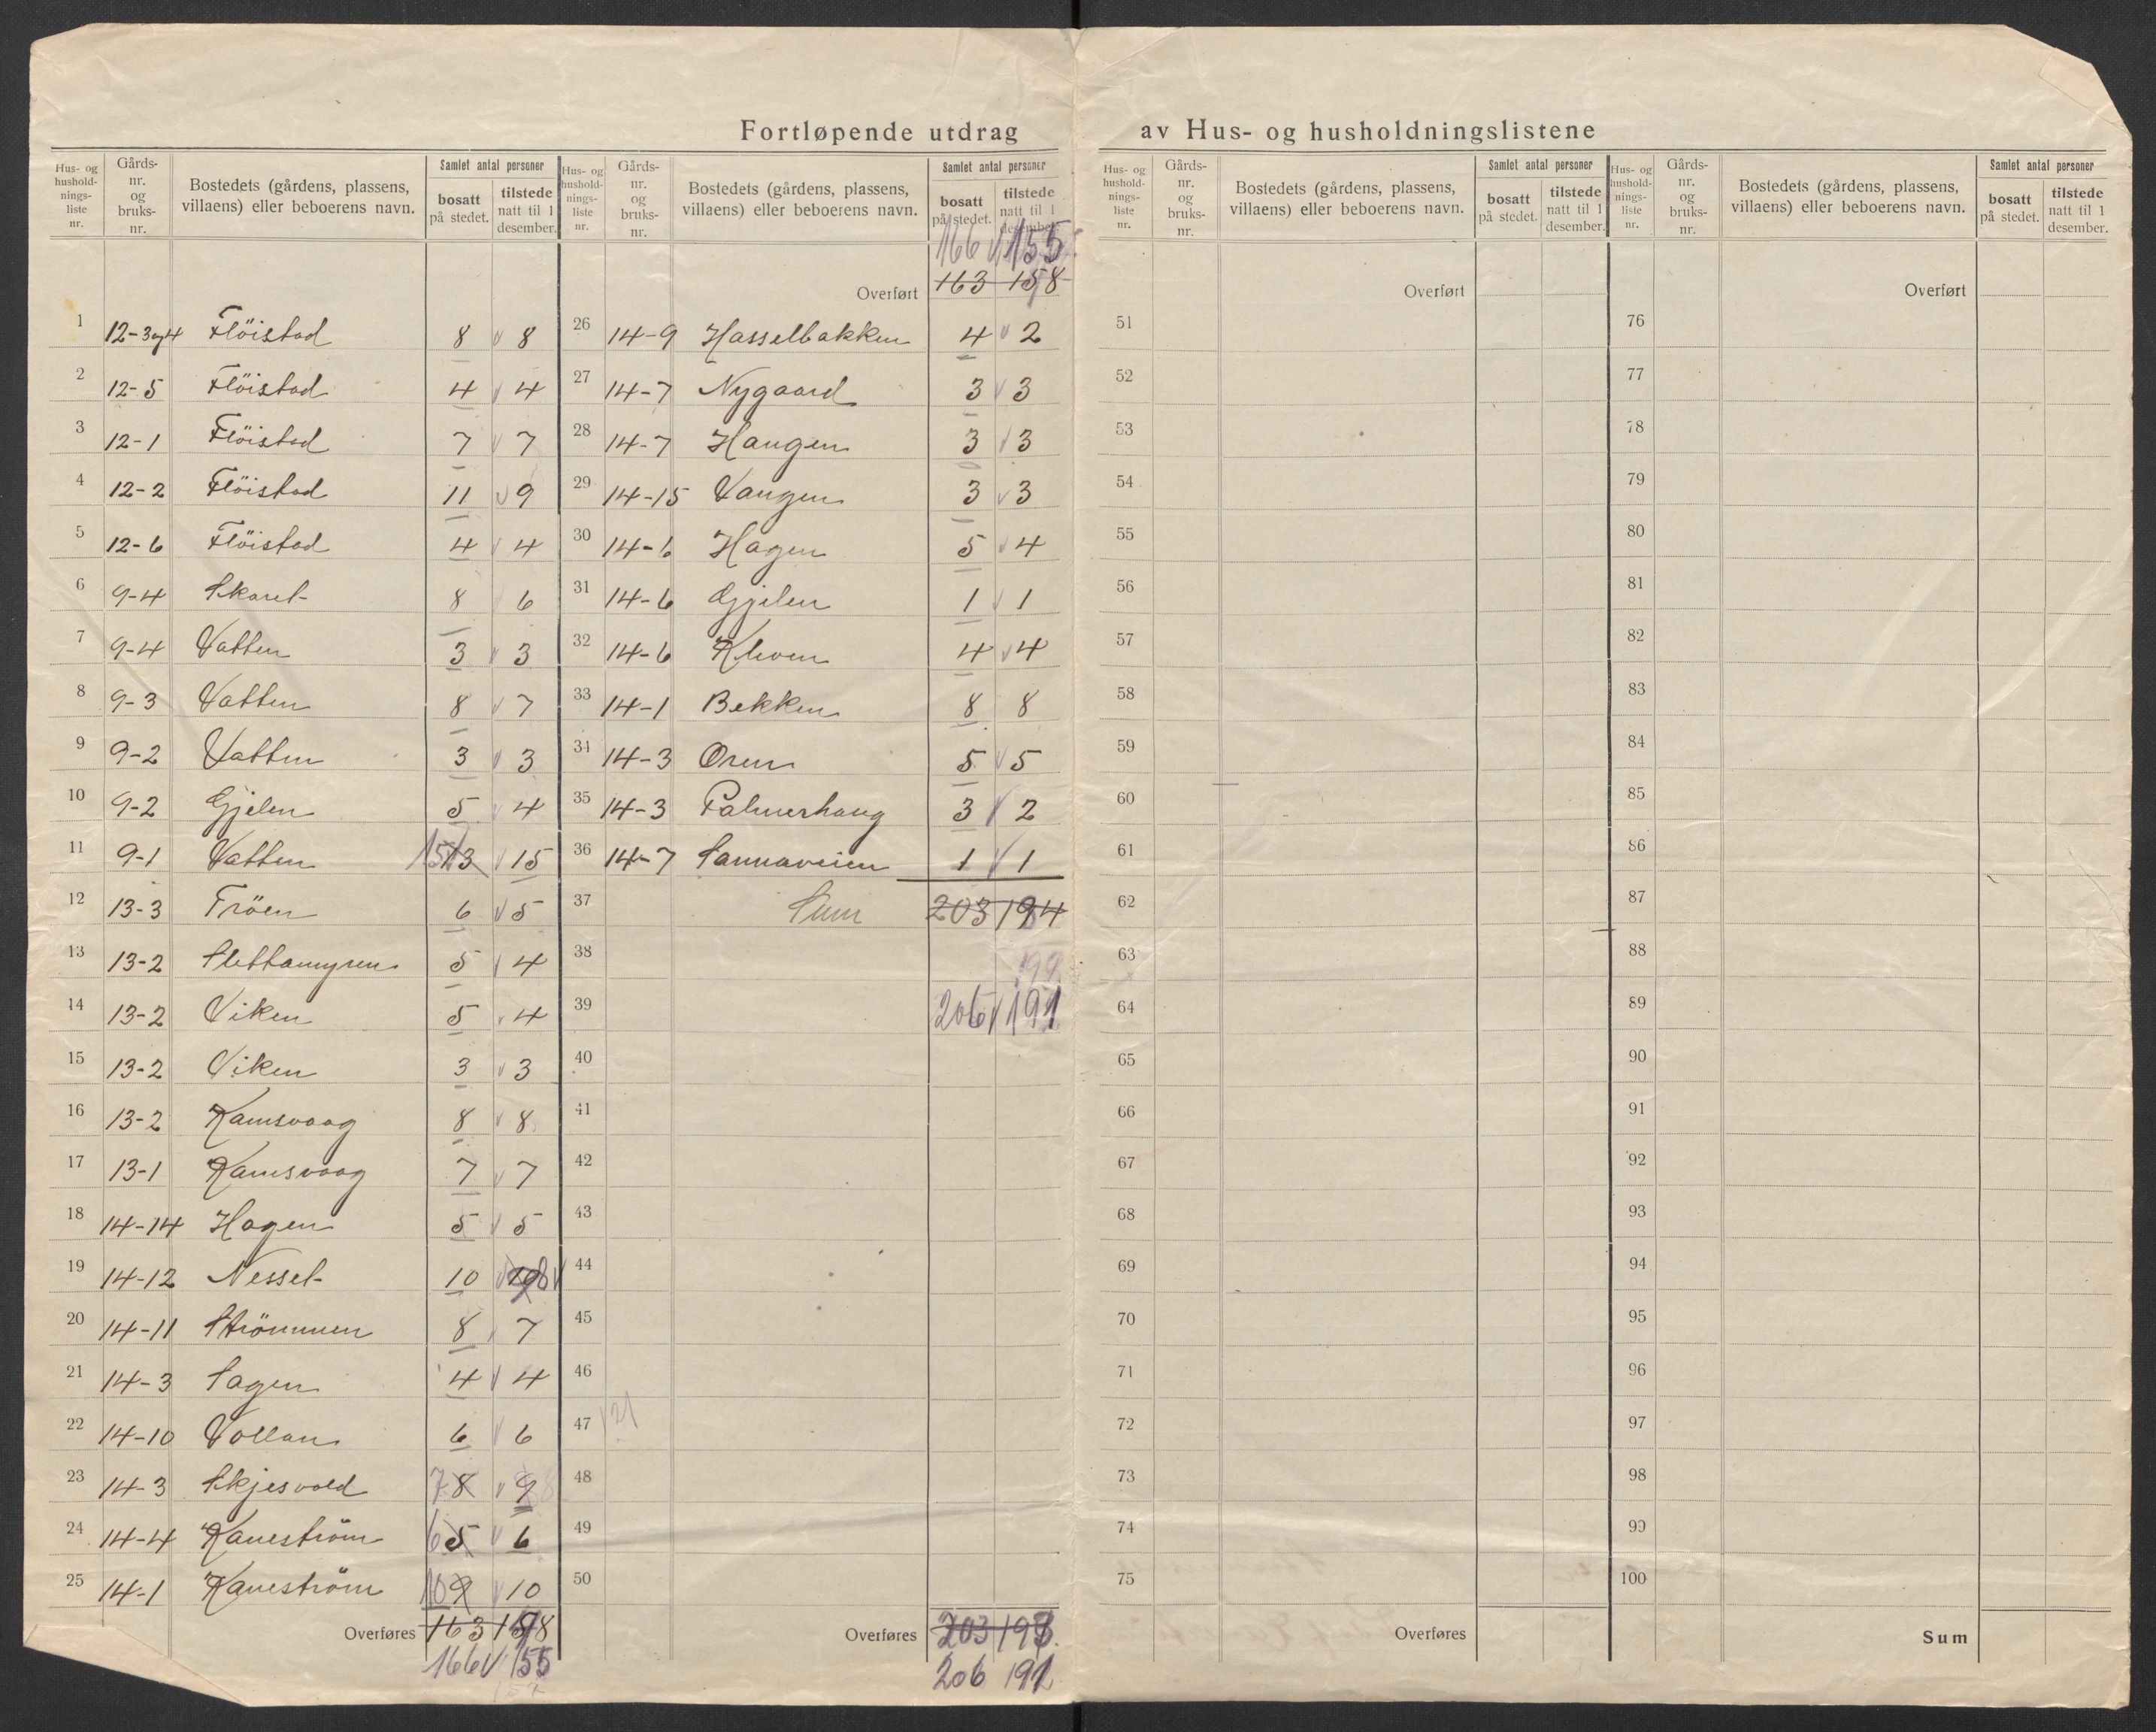 Fortløpende utdrag av Hus- og husholdningslistene
Hus- og hushold-nings-liste nr. Gårds-nr. og bruks-nr. Bostedets (gårdens, plassens, villaens) eller beboerens navn. Samlet antal personer bosatt på stedet. tilstede natt til 1 desember.
1 12-3og4 Flöistad 8 v 8
2 12-5 Flöistad 4 v 4
3 12-1 Flöistad 7 v 7
4 12-2 Flöistad 11 v 9
5 12-6 Flöistad 4 v 4
6 9-4 Skaret 8 v 6
7 9-4 Vatten 3 v 3
8 9-3 Vatten 8 v 7
9 9-2 Vatten 3 v 3
10 9-2 Gjelen 5 v 4
11 9-1 Vatten 15 13 v 15
12 13-3 Tröen 6 v 5
13 13-2 Slettamyren 5 v 4
14 13-2 Viken 5 v 4
15 13-2 Viken 3 v 3
16 13-2 Ramsvaag 8 v 8
17 13-1 Ramsvaag 7 v 7
18 14-14 Hagen 5 v 5
19 14-12 Nesset 10 v 8 v
20 14-11 Strömmen 8 7
21 14-3 Sagen 4 v 4
22 14-10 Vollan 6 v 6
23 14-3 Skjesvold 7 8 v 9 8
24 14-4 Kanestöm 6 5 v 6
25 14-1 Kaneström 10 9 v 10
Overføres 163 158
166 v 155
157
Hus- og hushold-nings-liste nr. Gårds-nr. og bruks-nr. Bostedets (gårdens, plassens, villaens) eller beboerens navn. Samlet antal personer bosatt på stedet. tilstede natt til 1 desember.
166 v 155
Overført 163 158
26 14-9 Hasselbakken 4 v 2
27 14-7 Nygaard 3 v 3
28 14-7 Haugen 3 v 3
29 14-15 Vangen 3 v 3
30 14-6 Hagen 5 v 4
31 14-6 Gjelen 1 v 1
32 14-6 Kleven 4 v 4
33 14-1 Bekken 8 8
34 14-3 Oren 5 v 5
35 14-3 Palmerhaug 3 v 2
36 14-7 Sannaveien 1 v 1
37 Sum 203 194
38
39 206 v 191
40
41
42
43
44
45
46
47 v 21
48
49
50
Overføres 203 193
206 191
Hus- og hushold-nings-liste nr. Gårds-nr. og bruks-nr. Bostedets (gårdens, plassens, villaens) eller beboerens navn. Samlet antal personer bosatt på stedet. tilstede natt til 1 desember.
Overført
51
52
53
54
55
56
57
58
59
60
61
62
63
64
65
66
67
68
69
70
71
72
73
74
75
Overføres
Hus- og hushold-nings-liste nr. Gårds-nr. og bruks-nr. Bostedets (gårdens, plassens, villaens) eller beboerens navn. Samlet antal personer bosatt på stedet. tilstede natt til 1 desember.
Overført
76
77
78
79
80
81
82
83
84
85
86
87
88
89
90
91
92
93
94
95
96
97
98
99
100
Sum